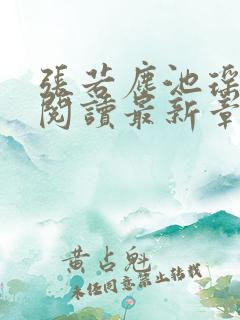 張若塵池瑤
閱讀最新章
黄占魁
未任同意禁止转载